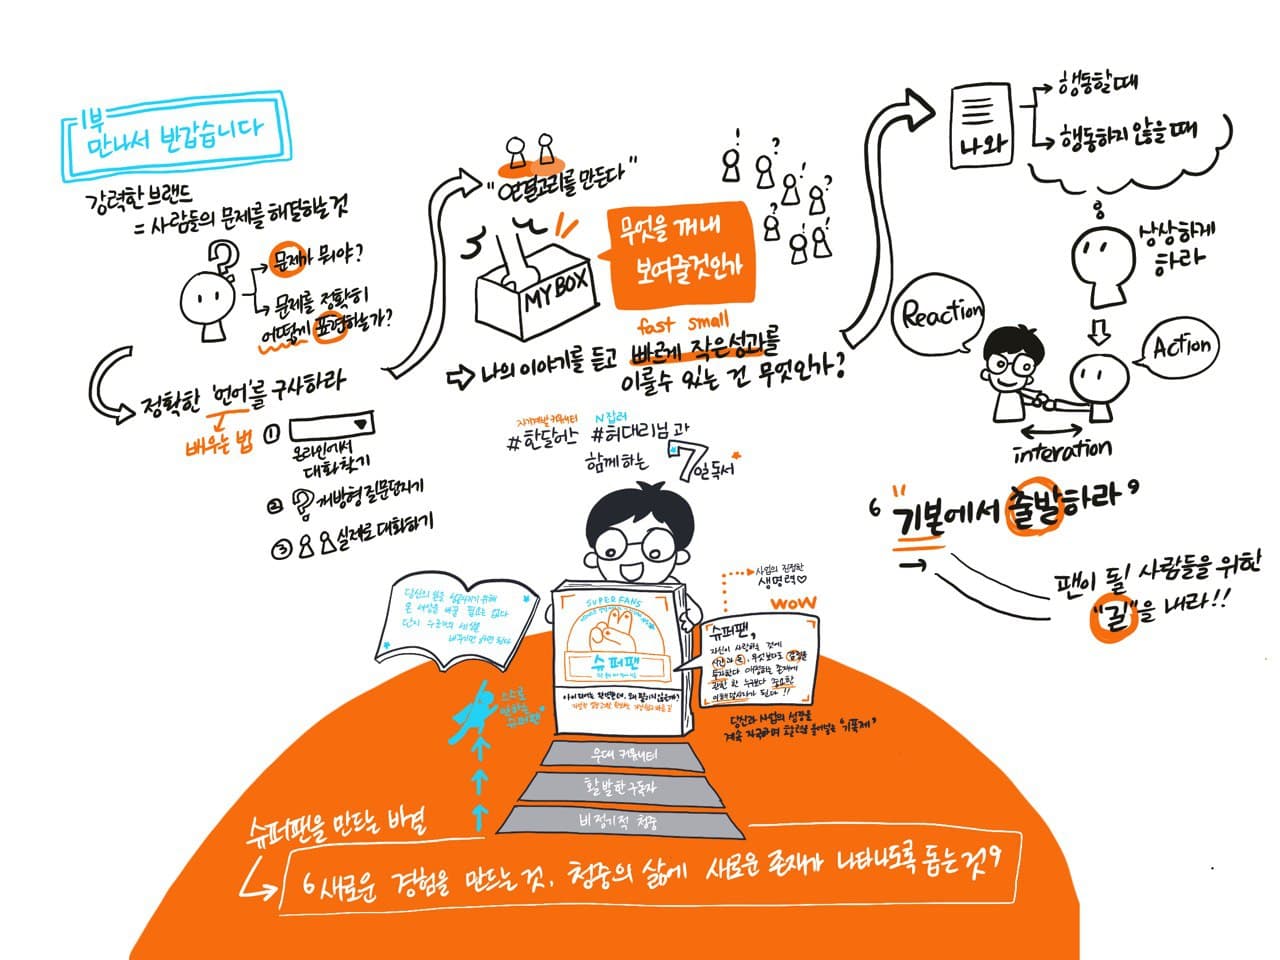 1부
만나서 반갑습니다
강력한 브랜드
= 사람들의 문제를 해결하는 것
?
문제가 뭐야?
문제를 정확히
어떻게 표현하는가?
정확한 '언어'를 구사하라
배우는 법
① 온라인에서
대화찾기
② ? 개방형 질문던지기
③ 실제로 대화하기
"연결고리를 만든다"
MY BOX
무엇을 꺼내
보여줄것인가
fast small
나의 이야기를 듣고 빠르게 작은성과를
이룰수 있는 건 무엇인가?
나와
행동할 때
행동하지 않을 때
상상하게
하라
Reaction
Action
interation
'기본에서 출발하라'
팬이 될! 사람들을 위한
"길"을 내라!!
자기계발 커뮤니티
N잡러
#한달어스 #허대리님과
함께하는 7일독서
당신의 판을 성공시키기 위해
온 세상을 바꿀 필요는 없다
단지 누군가의 세상을
바꾸기만 하면 된다
SUPERFANS
슈퍼팬
사업의 진정한
생명력♡
WOW
슈퍼팬,
자신이 사랑하는 것에
시간과 돈, 무엇보다도 감정을
투자한다 대접하는 존재에
관한 한 누구보다 중요한
이해당사자가 된다!!
당신과 사업의 성장을
계속 자극하며
'기폭제'
스스로
슈퍼팬"
우대 커뮤니티
활발한 구독자
비정기적 청중
슈퍼팬을 만드는 비결
'새로운 경험을 만드는 것, 청중의 삶에 새로운 존재가 나타나도록 돕는 것'